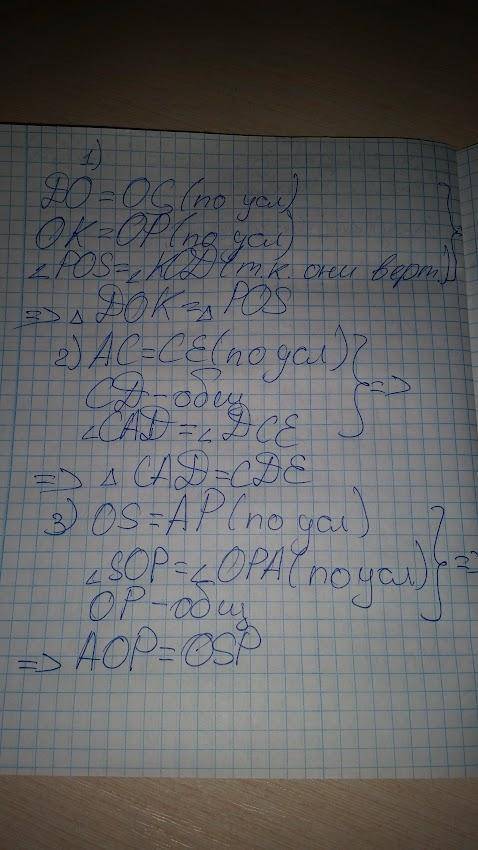 1)
DO=OC(по усл)
OK=OP(по усл)
∠POS=∠KOD(т.к. они верт.)
=> △ DOK=△ POS
2) AC=CE(по усл) =>
CD-общ
∠CAD=∠DCE
=> △ CAD=CDE
3) OS=AP(по усл)
∠SOP=∠OPA(по усл) =>
OP-общ
=> AOP=OSP